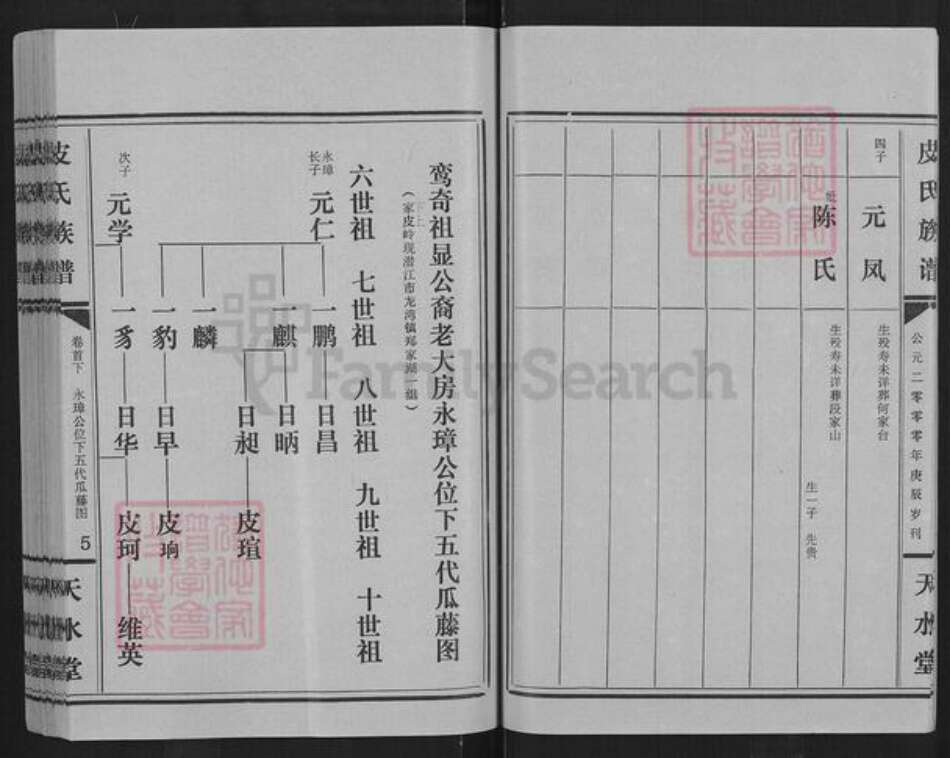 皮氏族谱
公元二零零零年庚辰岁刊
天水堂
四子
元凤
生殁寿未详葬何家台
妣陈氏
生殁寿未详葬段家山
生一子 先贵
鸾奇祖显公裔老大房永璋公位下五代瓜藤图
六世祖 七世祖 八世祖 九世祖 十世祖
永璋
长子
元仁
一鹏 日昌
一麒 日昞
日昶 皮瑄
一麟
一豹 日早 皮珦
次子
元学
一豸 日华 皮珂 维英
皮氏族谱
卷首下 永璋公位下五代瓜藤图 5
天水堂
FamilySearch